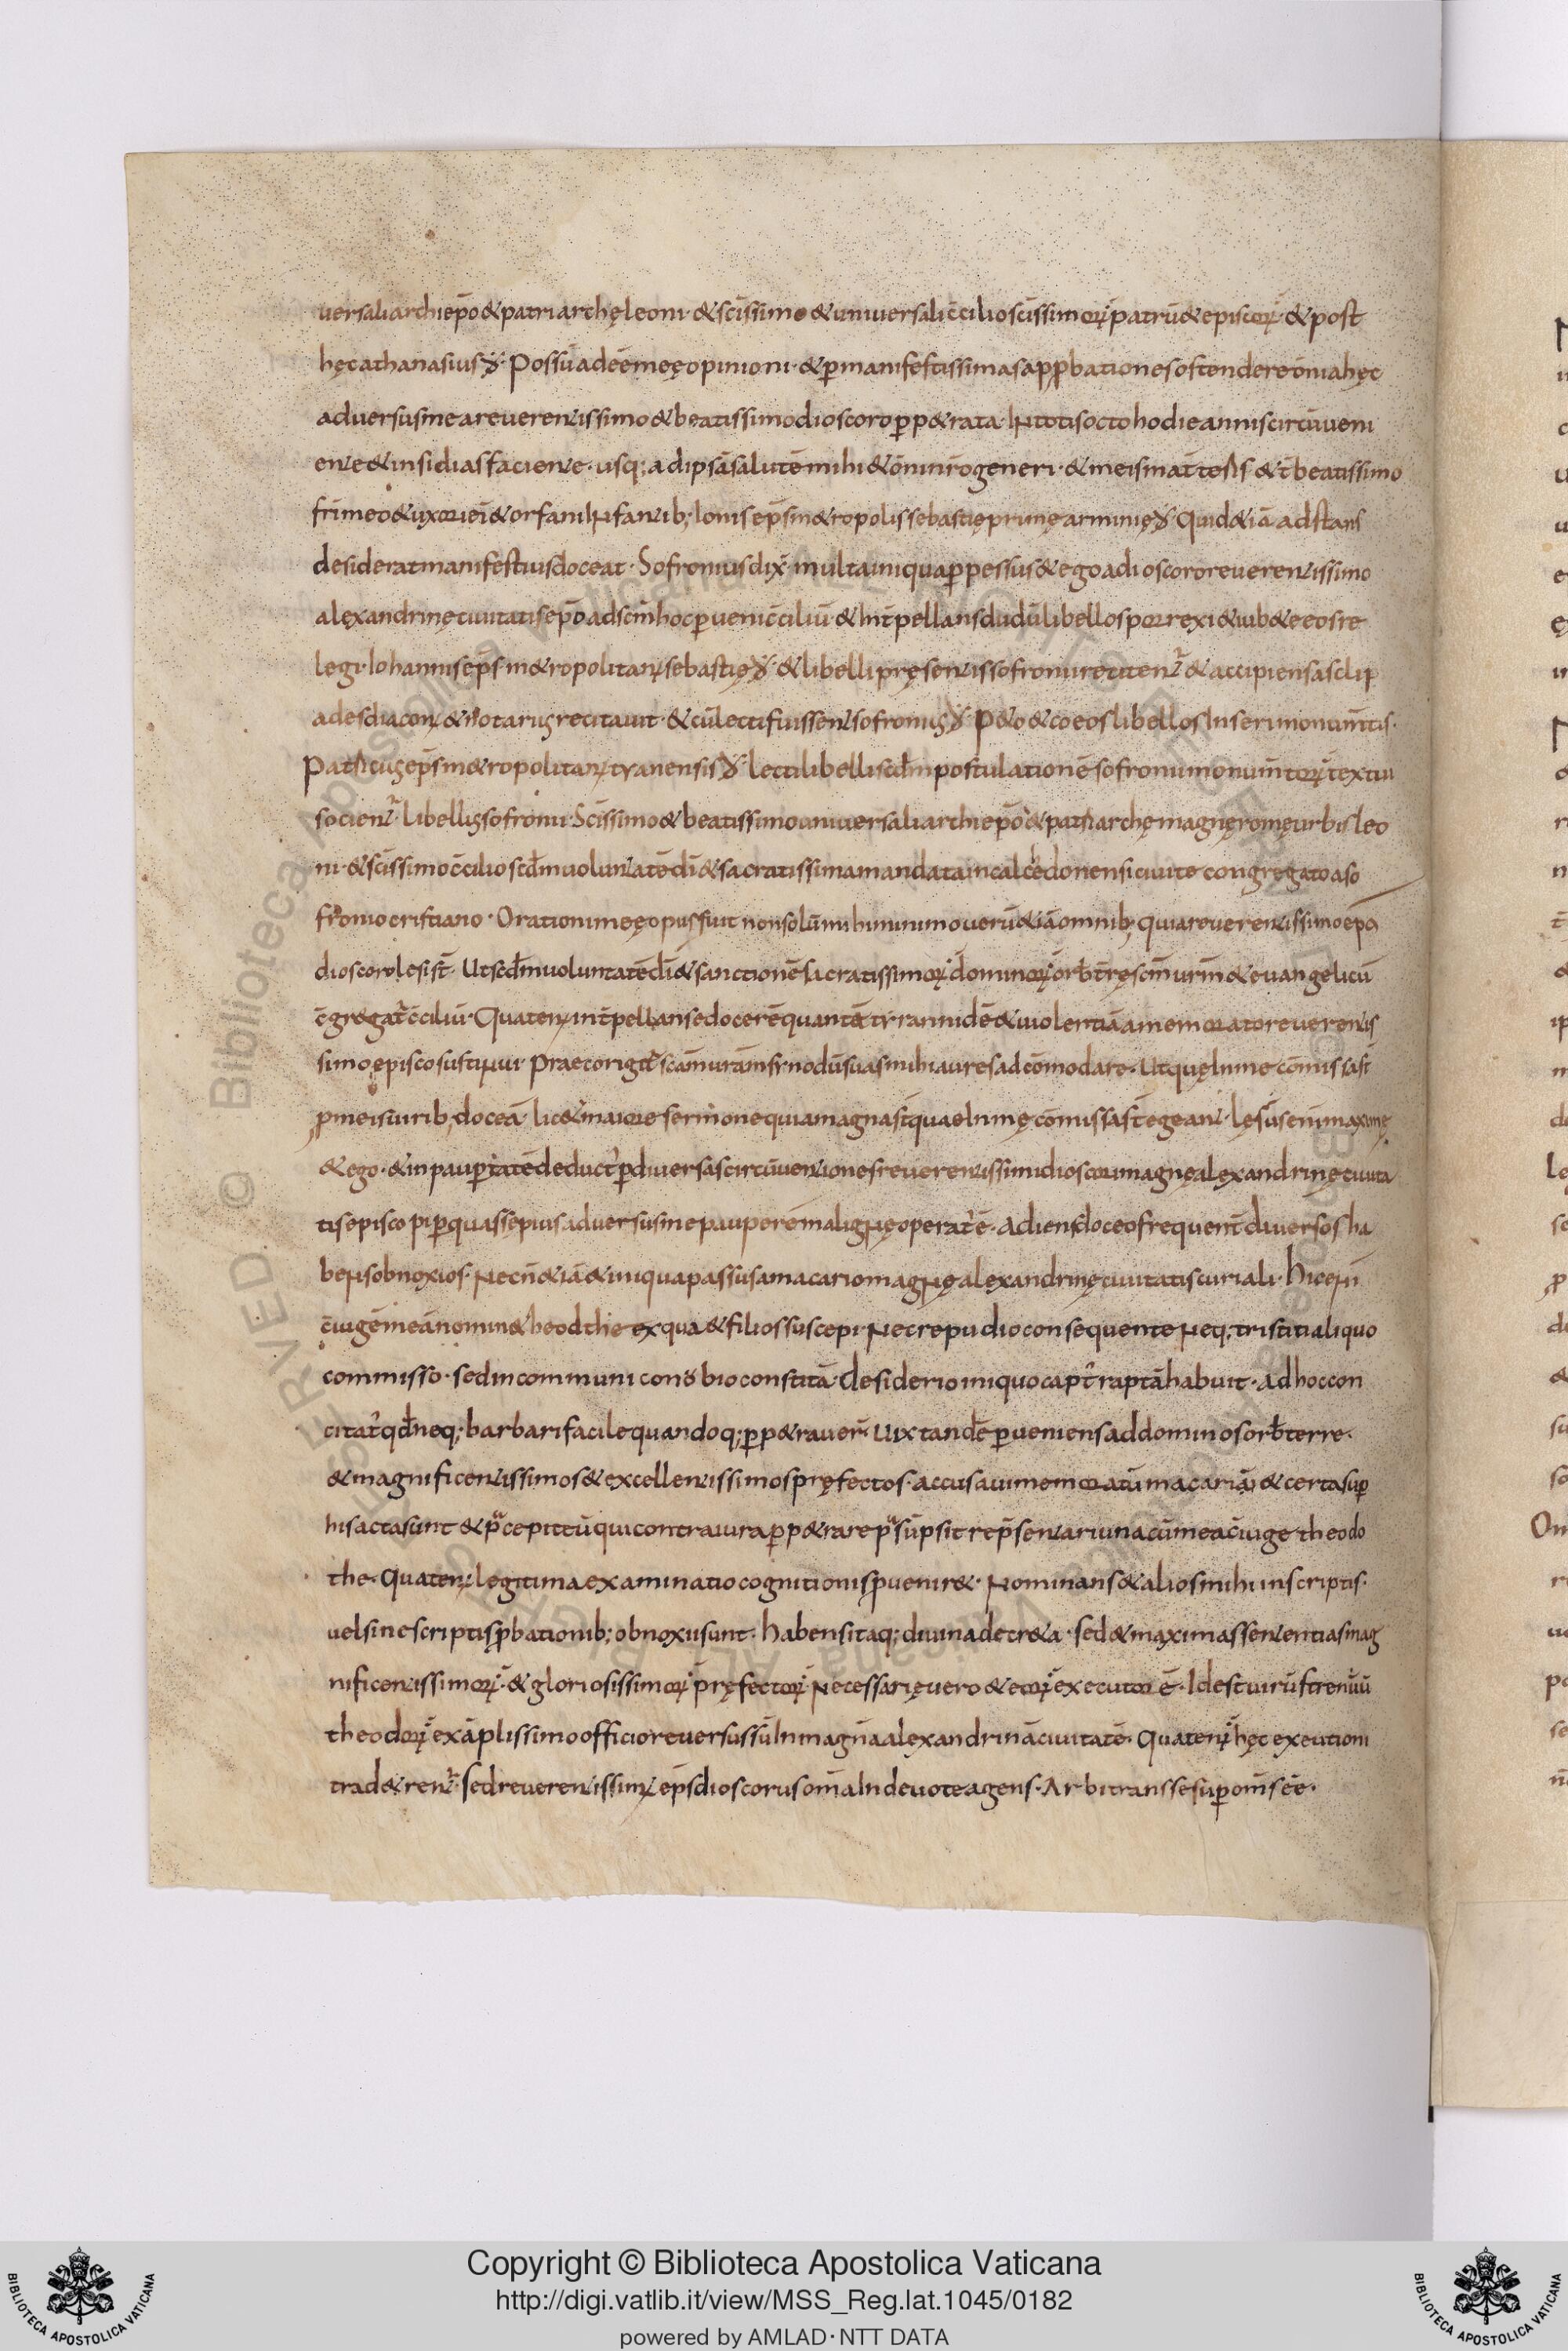 uersali archiep̄o & patriarchę leoni · & sc̄issimo & uniuersali c̄cilio sc̄issimoꝝ patrū & episcoꝝ · & post
hęc athanasius đ · Possū ad eē meę opinioni · & ꝑ manifestissimas apꝓbationes ostendere om̄ia hęc
aduersus me a reuerentissimo & beatissimo dioscoro ꝑp&rata · In totis octo hodie annis circūueni
ente & insidias faciente · usq; ad ipsā salutē mihi & om̄i nr̄o generi · & meis mat̄teris & t̄ beatissimo
fr̄i meo & uxori ei & orfanis infantib; Ionis ep̄s m&ropolis sebastię primę arminię đ · Quid &iā adstans
desiderat manifestius doceat · Sofronius dix̄ multa iniqua ꝑpessus & ego a dioscoro reuerentissimo
alexandrinę ciuitatis ep̄o ad sc̄m hoc ꝑueni c̄ciliū & Int̄pellans dudū libellos porrexi & iub&e eos re
legi · Iohannis ep̄s m&ropolitanꝰ sebastię đ · & libelli pręsentis sofronii recitent̄ & accipiens asclip
ades diaconꝰ & notariꝰ recitauit · & cū lecti fuissent sofroniꝰ đ · P&o & co eos libellos Inseri monum̄tis ·
Patriciꝰ ep̄s m&ropolitanꝰ tyanensis đ · lecti libelli scd̄m postulationē sofronii monum̄toꝝ textui
socient̄ Libellꝰ sofronii · Sc̄issimo & beatissimo uniuersali archiep̄o & patriarchę magnę romę urbis leo
ni · & sc̄issimo c̄cilio scd̄m uoluntatē dī & sacratissima mandata in calchedonensi ciuite congregato a so
fronio cristiano · Orationi meę opus fuit non solū mihi minimo uerū &iā omnib; qui a reuerentissimo ep̄o
dioscoro lesi st̄ · Ut scd̄m uoluntatē dī & sanctionē sacratissimoꝝ dominoꝝ orb̄ t̄rę sc̄m ur̄m & euangelicū
c̄gregat̄ c̄ciliū · Quatenꝰ int̄pellans edocerē quantā tyrannidē & uiolentiā a memorato reuerentis
simo episco sustinui · Praecor igit̄ sc̄am ur̄am synodū suas mihi aures adcōmodare · Ut quę In me cōmissa st̄
ꝓ meis uirib; doceā · lic& maiore sermone quia magna st̄ quae In mę cōmissa st̄ egeant · lęsus eni maximę
& ego · & in pauꝑtatē deduct̄ ꝑ diuersas circūuentiones reuerentissimi dioscori magnę alexandrinę ciuita
tis episcopi ꝑ quas sępius aduersus me pauperē maligne operat̄ ē · adiens doceo frequent̄ diuersos ha
bens obnoxios · Necn̄ &iā & iniqua passus a macario magnę alexandrinę ciuitatis curiali · Hic eni
c̄iugē meā nomin& heodthe ex qua & filios suscepi · Nec repudio consequente neq; tristiti aliquo
commisso · sed in communi conubio constitā · desiderio iniquo capt̄ raptā habuit · ad hoc con
citat̄ qd̄ neq; barbari facile quandoq; ꝑp&rauer̄ · Uix tandē ꝑueniens ad dominos orb̄ terre ·
& magnificentissimos & excellentissimos pręfectos · accusaui memoratum macariū & certa suꝑ
his acta sunt & p̄cepit tū qui contra iura ꝑp&rare p̄sūpsit rep̄sentari una cū mea c̄iuge theodo
the · Quatenꝰ legitima examinatio cognitionis ꝓuenir& · Nominans & alios mihi in scriptis ·
uel sine scriptis ꝓbationib; obnoxii sunt · habens itaq; diuina decr&a · sed & maximas sententias mag
nificentissimoꝝ · & gloriosissimoꝝ pręfectoꝝ · Necessarię uero & eoꝝ executor ē · Id est uirū strenuū
theodoꝝ ex āplissimo officio reuersus sū In magnā alexandrinā ciuitatē · Quatenꝰ hęc executioni
trad&rent̄ · sed reuerentissimꝰ ep̄s dioscorus om̄ia Indeuote agens · Arbitrans se suꝑ om̄s eē ·
Copyright © Biblioteca Apostolica Vaticana
http://digi.vatlib.it/view/MSS_Reg.lat.1045/0182
powered by AMLAD · NTT DATA
BIBLIOTECA APOSTOLICA VATICANA
BIBLIOTECA APOSTOLICA VATICANA